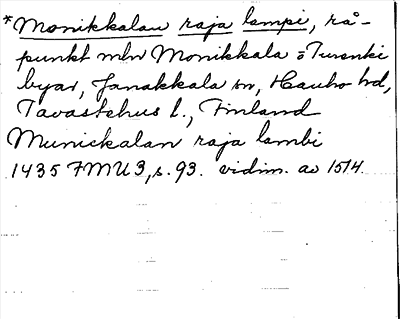 *Monikkalan raja lampi, rå-
punkt mln Monikkala o Turenki
byar, Janakkala sn, Hauho hd,
Tavastehus l., Finland
Munickalan raja lambi
1435 FMU 3, s. 93. vidim. av 1514.